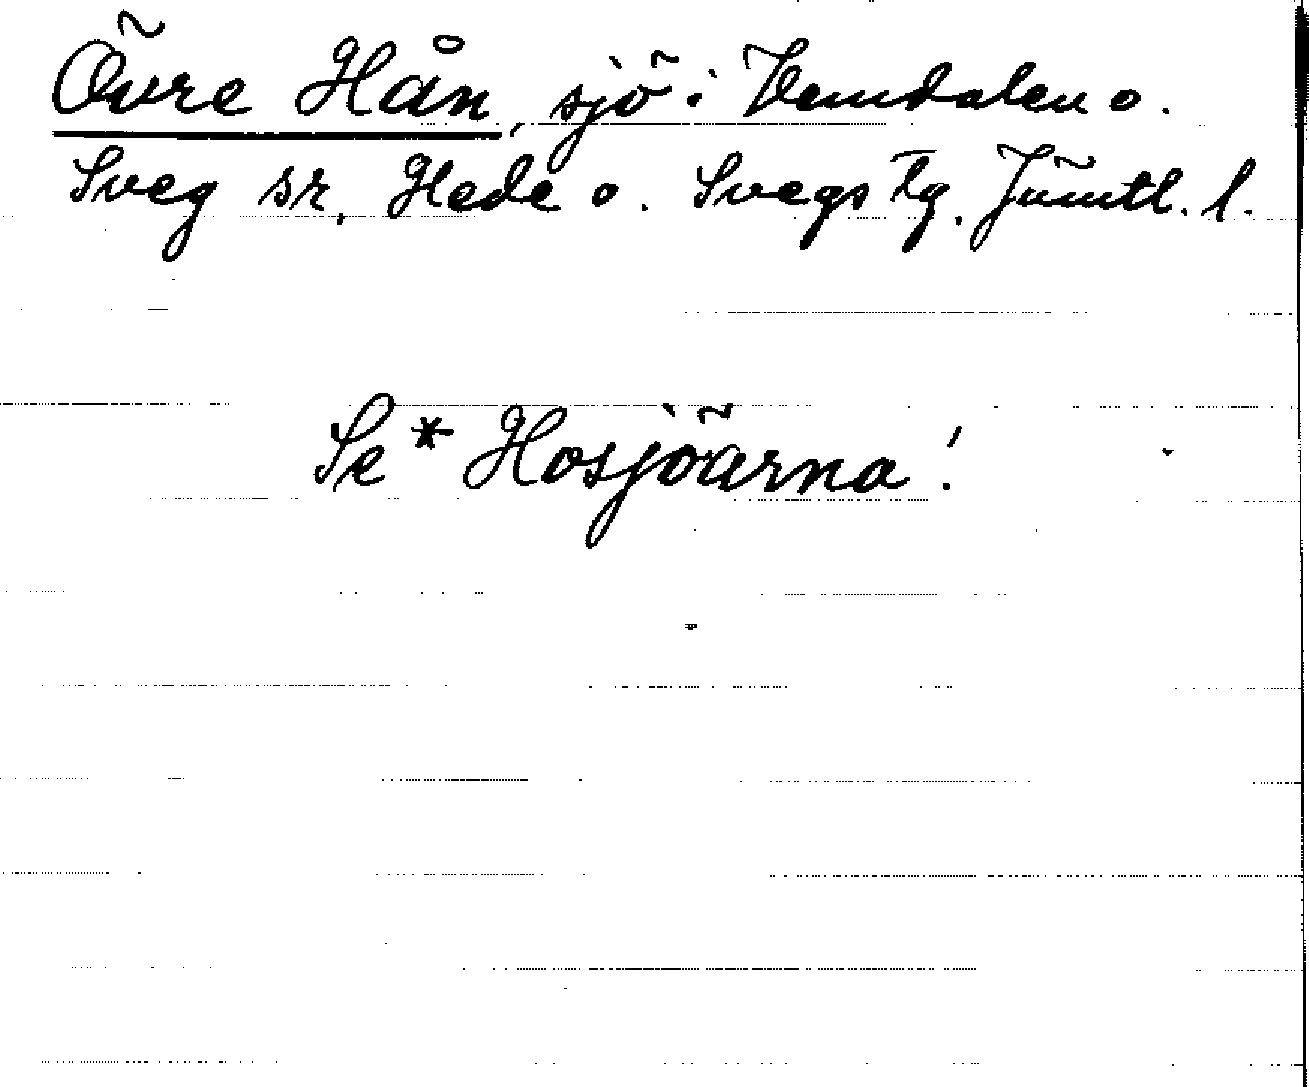 Övre Hån, sjö i Vemdalen o.
Sveg sr, Hede o. Svegs tg. Jämtl. l.
Se * Hosjöarna!